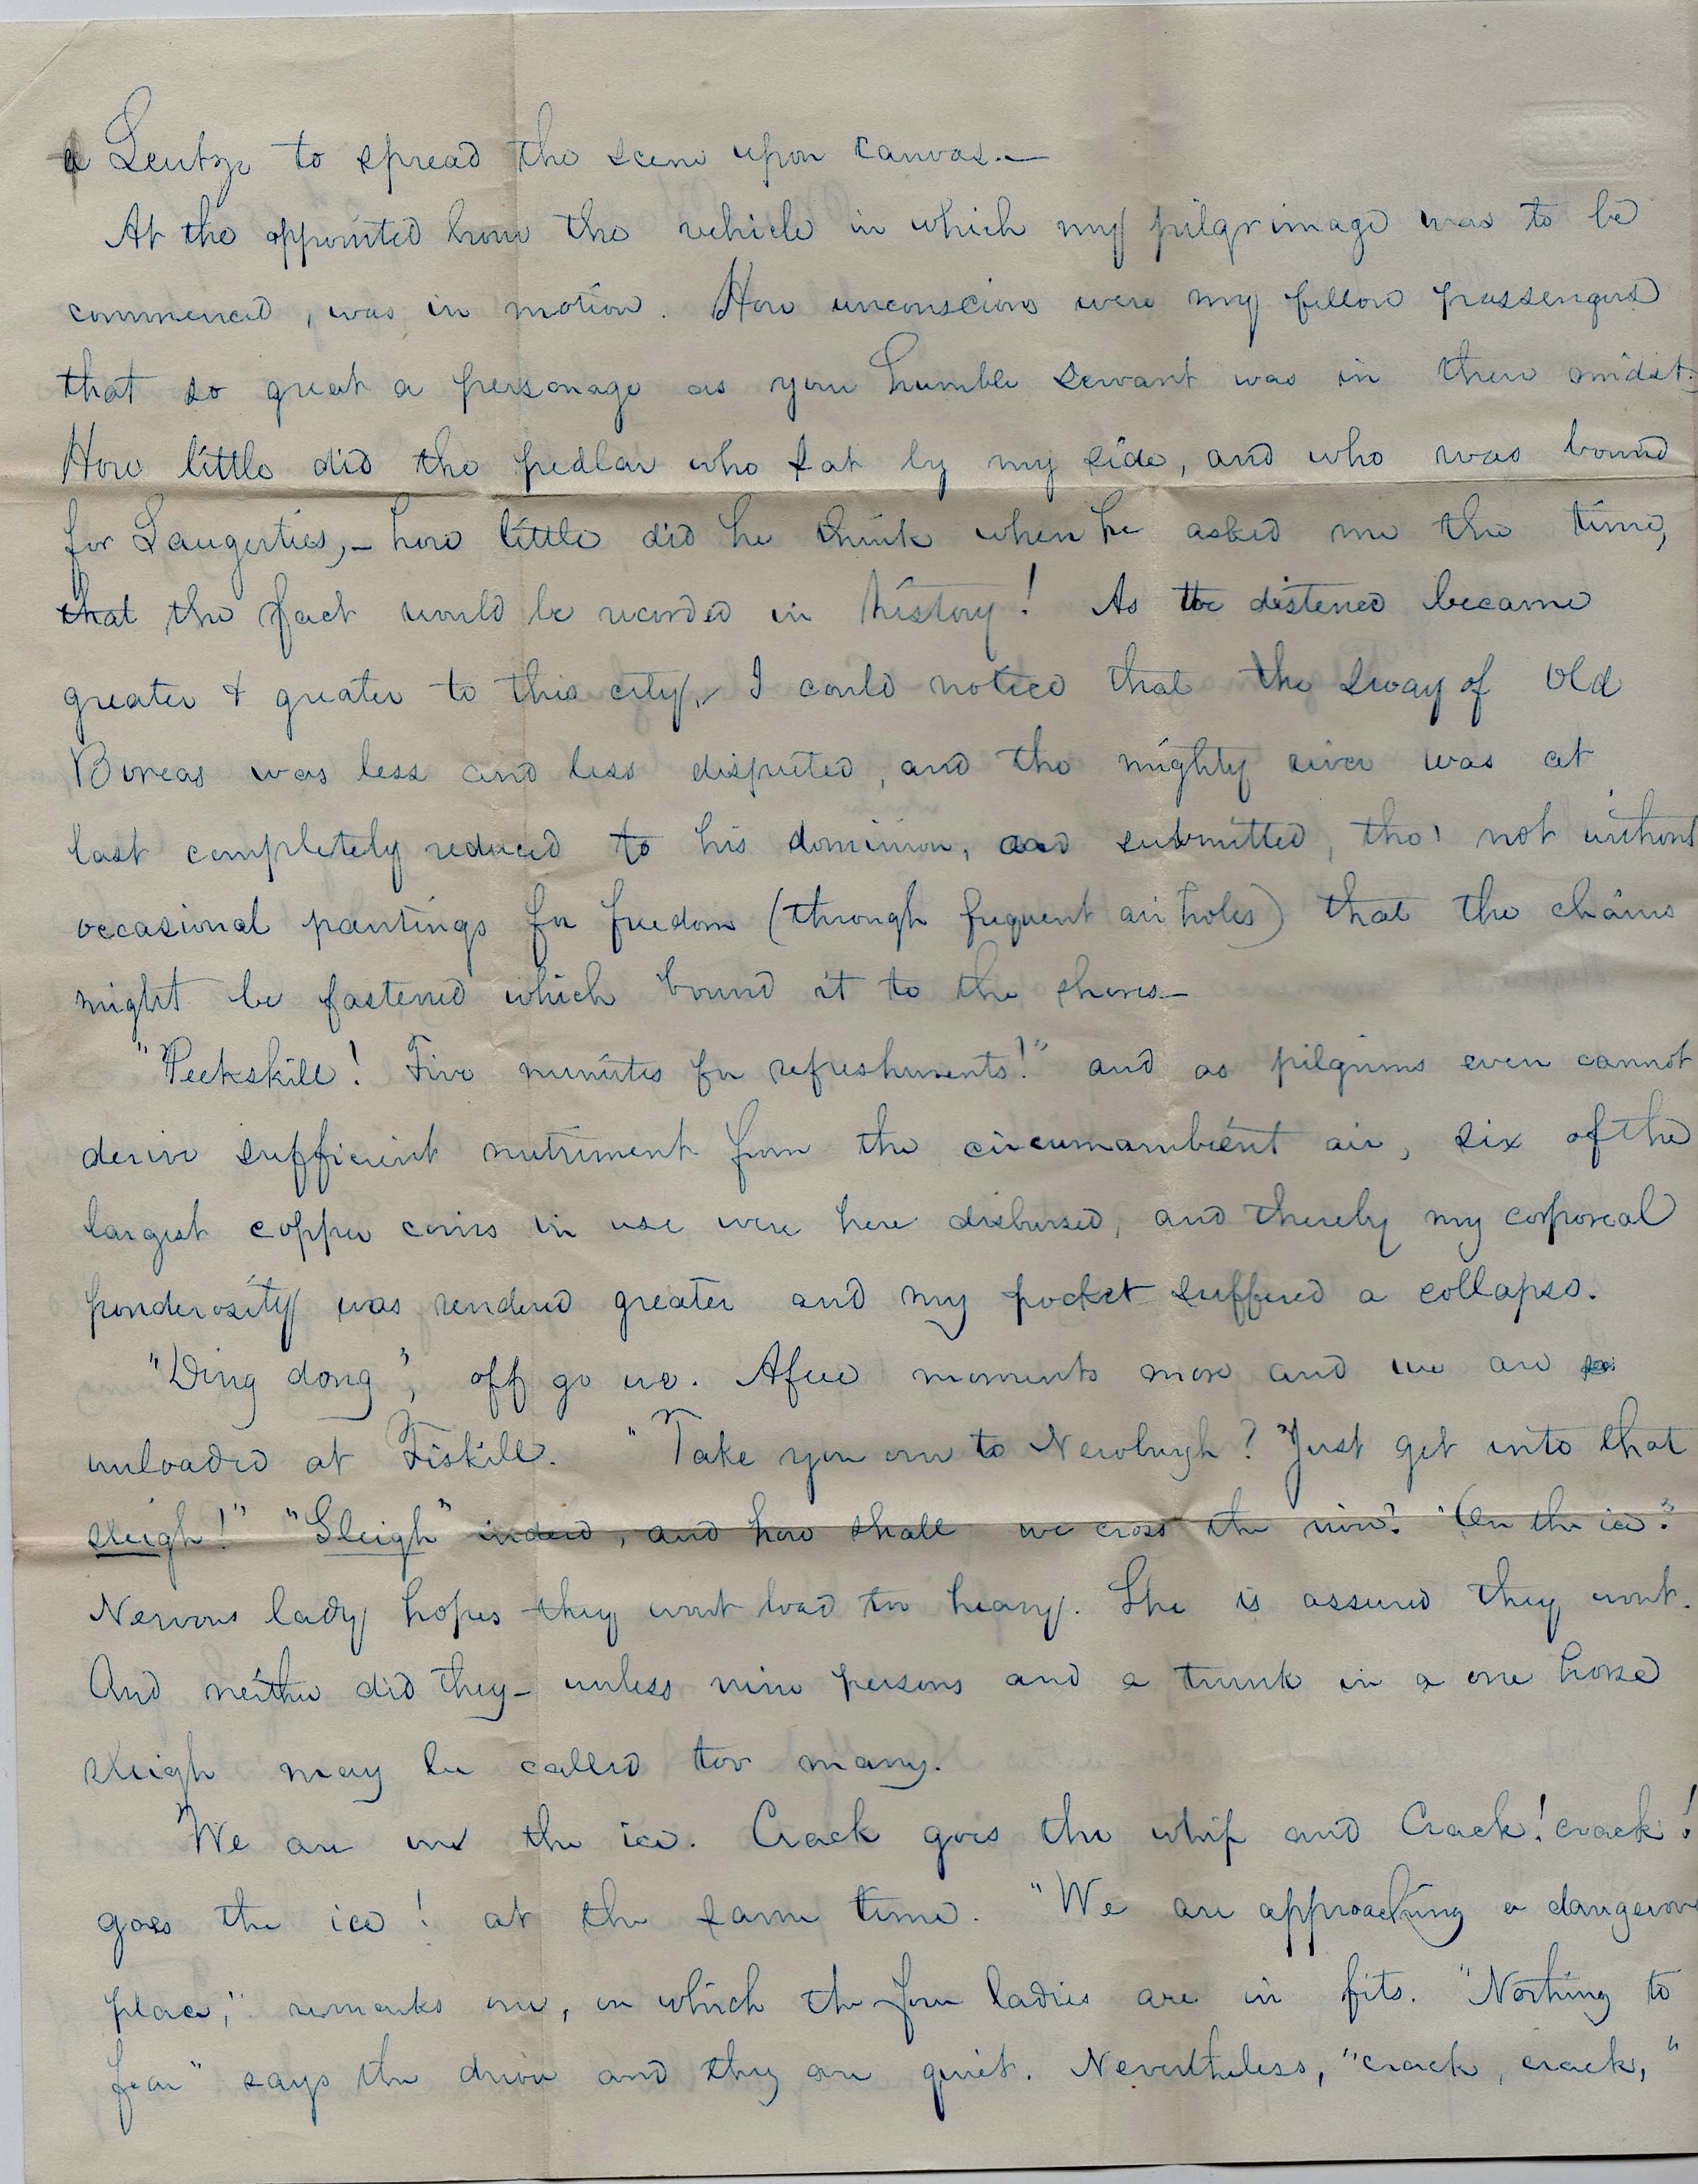 a Leutze to spread the scene upon canvas.—
At the appointed hour the vehicle in which my pilgrimage was to be
commenced, was in motion. How unconscious were my fellow passengers
that so great a personage as your humble servant was in their midst.
How little did the pedlar who sat by my side, and who was bound
for Saugerties,— how little did he think when he asked me the time,
that the fact would be recorded in history! As the distened became
greater & greater to this city,— I could notice that the sway of Old
Boreas was less and less disputed, and the mighty river was at
last completely reduced to his dominion, and submitted, tho' not without
occasional pantings for freedom (through frequent air holes) that the chains
might be fastened which bound it to the shores—
"Peekskill! Five minutes for refreshments!" and as pilgrims even cannot
derive sufficient nutriment from the circumambient air, six of the
largest copper coins in use were here disbursed, and thereby my corporeal
ponderosity was rendered greater and my pocket suffered a collapse.
"Ding dong", off go we. A few moments more and we are
unloaded at Fiskill. "Take you over to Newburgh? Just get into that
sleigh!" "Sleigh" indeed, and how shall we cross the river? "On the ice."
Nervous lady hopes they wont load too heavy. She is assured they wont.
And neither did they— unless nine persons and a trunk in a one horse
sleigh may be called too many.
We are on the ice. Crack goes the whip and Crack! crack!
goes the ice! at the same time. "We are approaching a dangerous
place," remarks one, on which the four ladies are in fits. "Nothing to
fear" says the driver and they are quiet. Nevertheless, "crack, crack,"